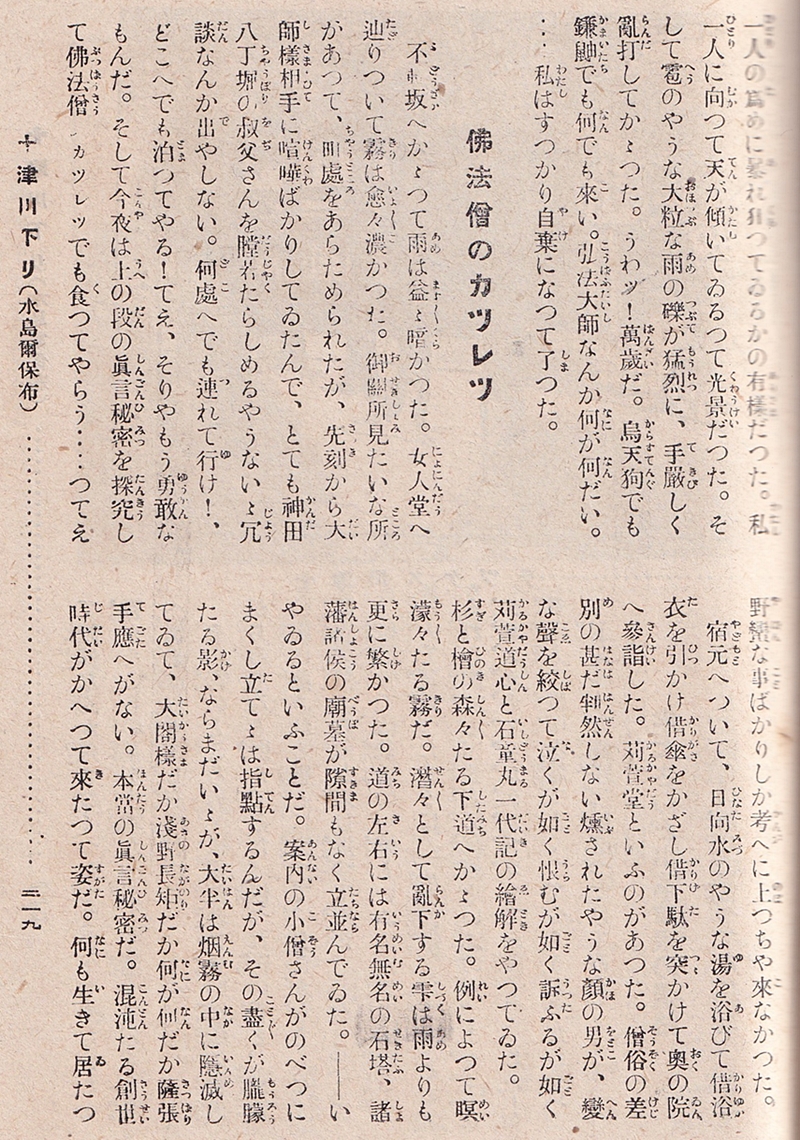 一人の爲めに暴れ狂つてゐるかの有樣だつた。私
一人に向つて天が傾いてゐるつて光景だつた。そ
して雹のやうな大粒な雨の礫が猛烈に、手厳しく
亂打してかゝつた。うわッ！萬歳だ。烏天狗でも
鎌鼬でも何でも來い。弘法大師なんか何が何だい。
…私はすつかり自棄になつて了つた。
佛法僧のカツレツ
不坂へかゝつて雨は益〻暗かつた。女人堂へ
辿りついて霧は愈々濃かつた。御關所見たいな所
があつて、町處をあらためられたが、先刻から大
師樣相手に喧嘩ばかりしてゐたんで、とても神田
八丁堀の叔父さんを瞠若たらしめるやうないゝ冗
談なんか出やしない。何處へでも連れて行け！、
どこへでも泊つてやる！てえ、そりやもう勇敢な
もんだ。そして今夜は上の段の眞言秘密を探究し
て佛法僧カツレツでも食つてやらう……つてえ
野な事ばかりしか考へに上つちや來なかつた。
宿元へついて、日向水のやうな湯を浴びて借浴
衣を引かけ借傘をかざし借下駄を突かけて奥の院
へ參詣した。苅萱堂といふのがあつた。僧俗の差
別の甚だ判然しない燻されたやうな顔の男が、變
な聲を絞つて泣くが如く恨むが如く訴ふるが如く
苅萱道心と石童丸一代記の繪解をやつてゐた。
杉と檜の森々たる下道へかゝつた。例によつて暝
濛々たる霧だ。潛々として亂下する雫は雨よりも
更に繁かつた。道の左右には有名無名の石塔、諸
藩諸侯の廟墓が隙間もなく立並んでゐた。――い
やゐるといふことだ。案内の小僧さんがのべつに
まくし立てゝは指點するんだが、その盡くが朧朦
たる影、ならまだいゝが、大半は烟霧の中に隱滅し
てゐて、大閤樣だか淺野長矩だか何が何だか薩張
手應へがない。本當の眞言秘密だ。混沌たる創世
時代がかへつて來たつて姿だ。何も生きて居たつ
十津川下り（水島爾保布）…………二一九